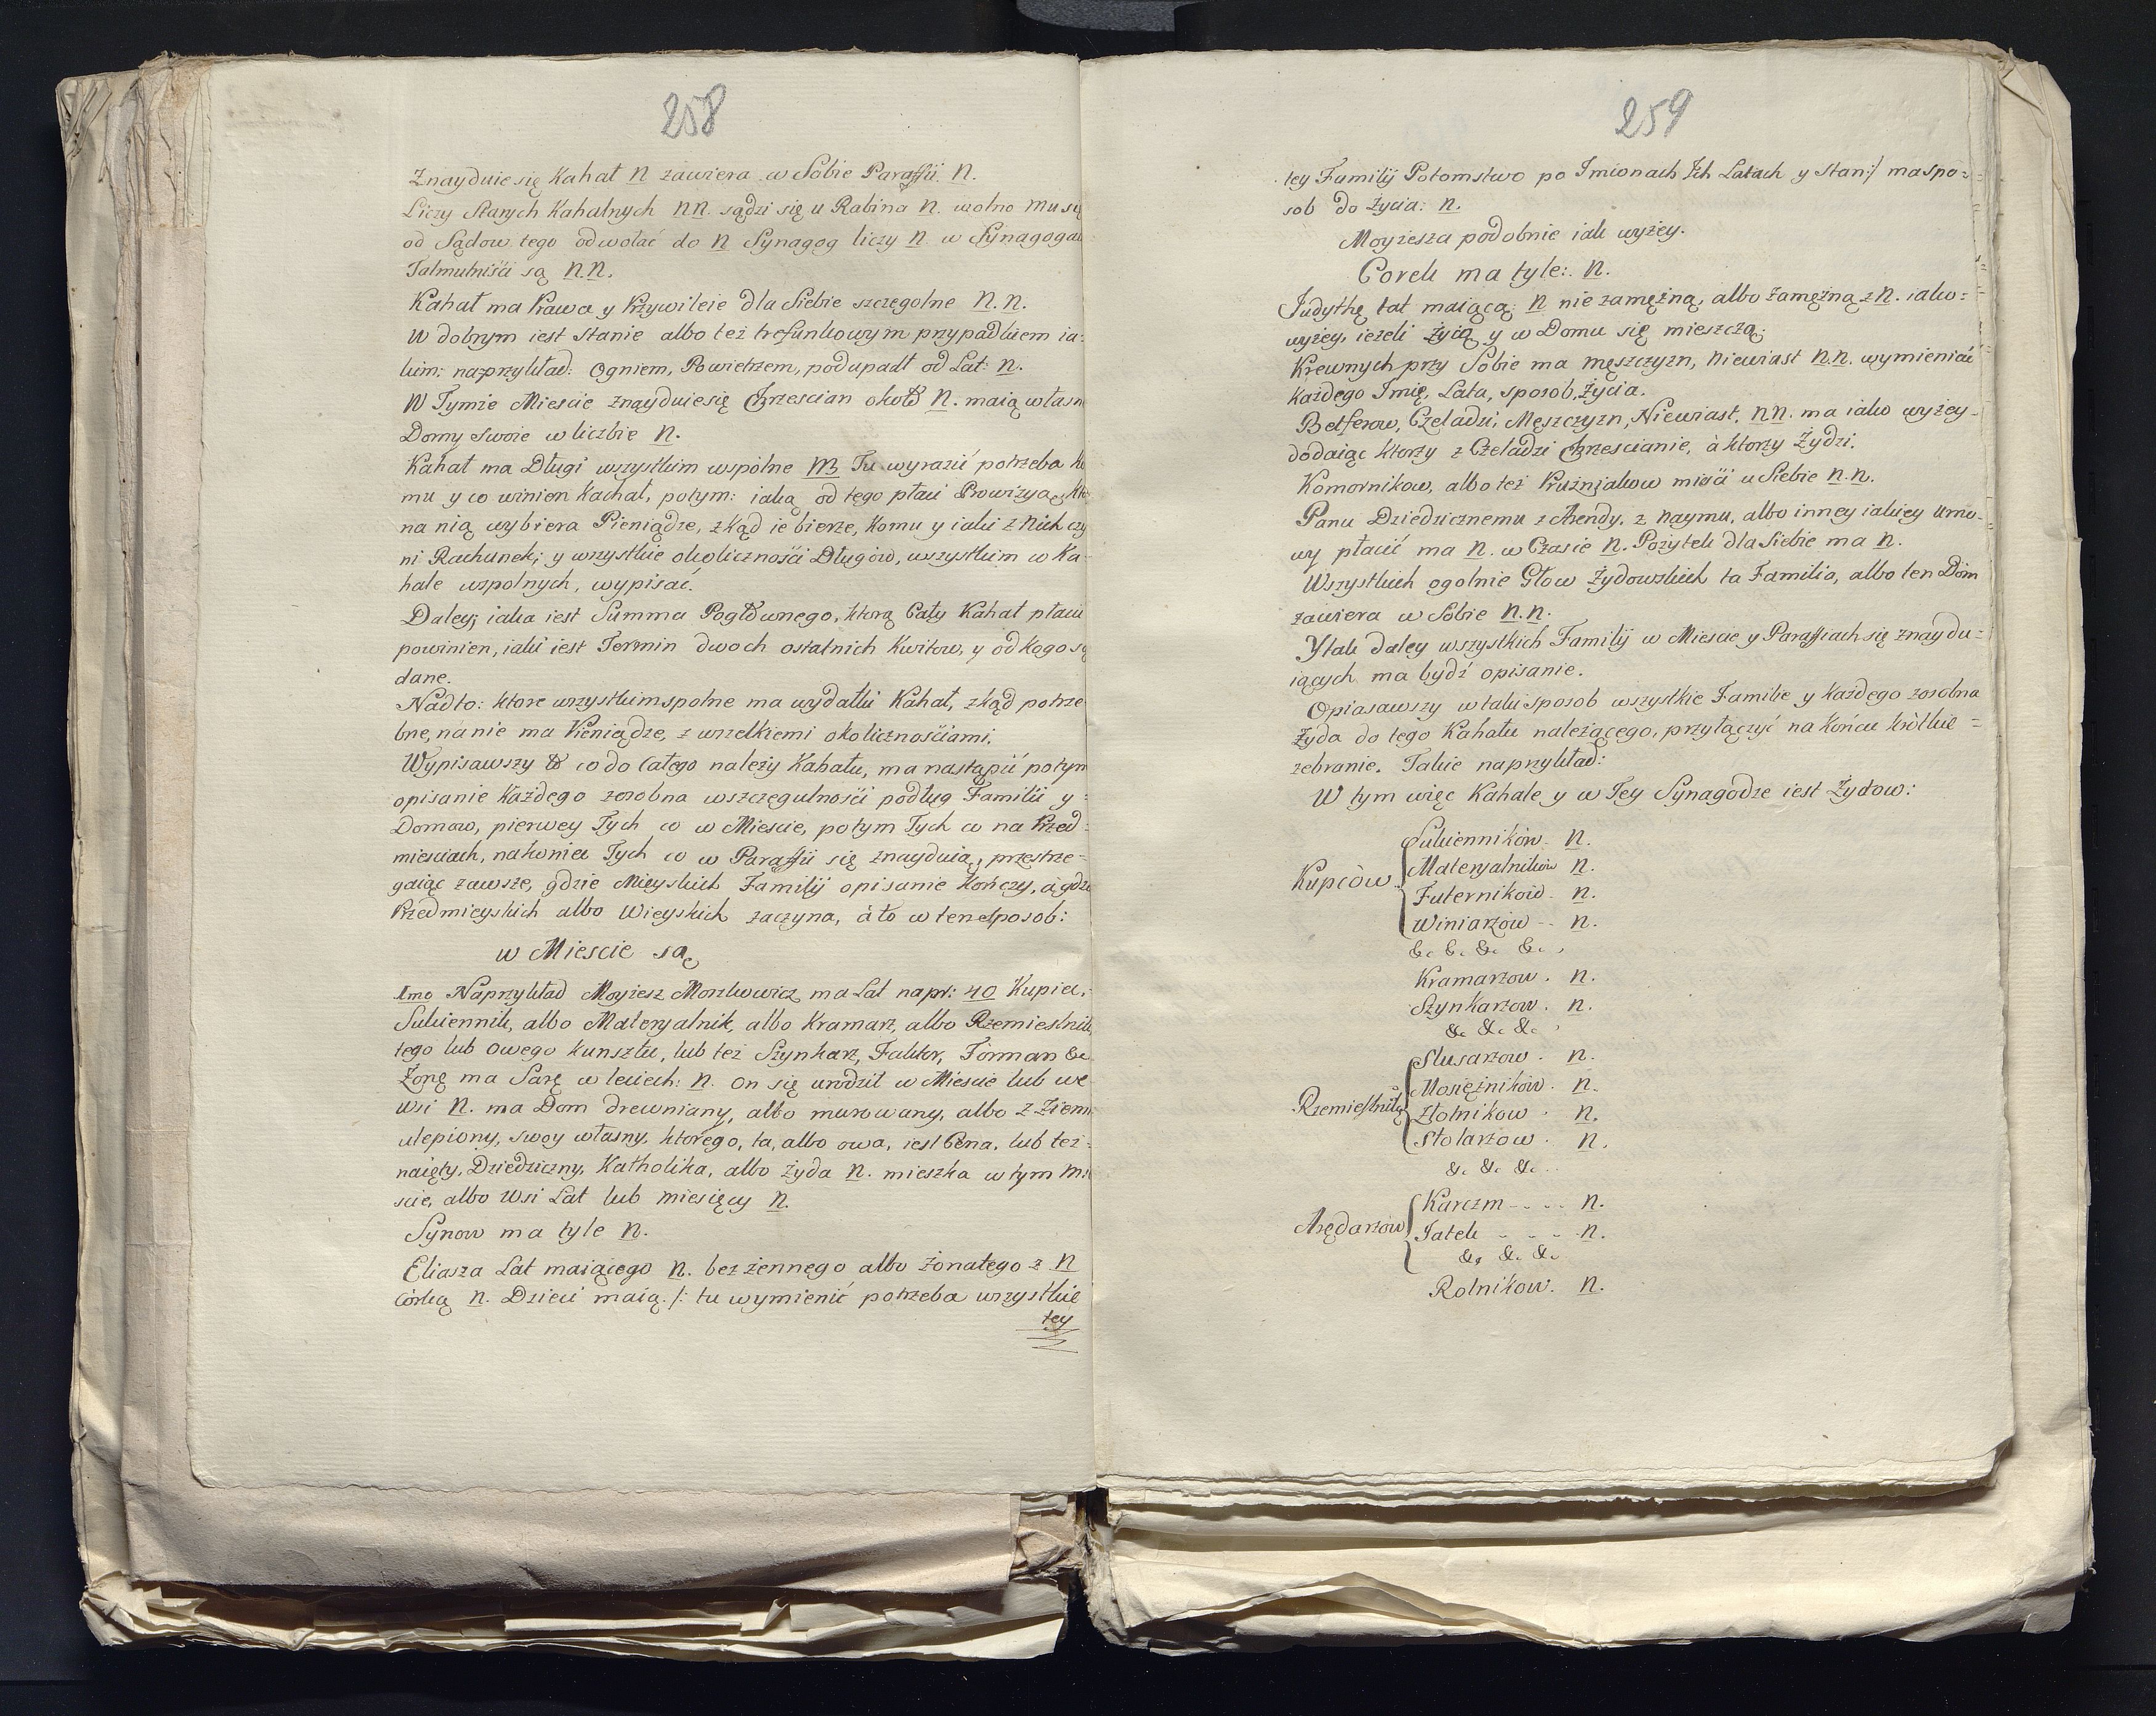 258
Znayduie się Kahał n zawiera w Sobie Paraffii. n.
Liczy Starych Kahalnych nn. sądzi się u Rabina n. wolno mu się
od Sądow tego odwołać do n Synagog liczy n w Synagogach
Talmutniści są n.n.
Kahał ma Prawa y Przywileie dla Siebie szczegolne n.n.
W dobrym iest Stanie albo też trefunkowym przypadkiem ia-
kim: naprzykład: Ogniem, Powietrzem, podupadł od Lat: n.
W Tymże Miescie znayduie się Chrzescian około n. maią własne
Domy Swoie w liczbie n.
Kahał ma Długi wszystkim wspolne
Tu wyrazić potrzeba ko
mu y co winien Kachał, potym: iaką od tego płaci Prowizyą, kto
na nią wybiera Pieniądze, zkąd ie bierze, Komu y iaki z Nich czy
ni Rachunek; y wszystkie okoliczności Długów, wszystkim w Ka-
hale wspolnych, wypisać.
Daley; iaka iest Summa Pogłownego, ktorą Cały Kahał płacić
powinien, iaki iest Termin dwoch ostatnich Kwitow, y od kogo są
dane.
Nadto: ktore wszystkim spolne ma wydatki Kahał, zkąd potrze
bne, ná nie ma Pieniądze, z wszelkiemi okolicznościami.
Wypisawszy to co do Całego należy Kahału, ma nastąpić potym
opisanie Każdego zosobna wszczegulności podług Familii y
Domow, pierwey Tych co w Miescie, potym Tych co na Przed-
miesciach, nakoniec Tych co w Paraffii się znayduią, przestrze-
gaiąc zawsze, gdzie Mieyskich Familij opisanie kończy, á gdzie
Przedmieyskich albo Wieyskich zaczyna, á to w ten Sposob:
w Miescie są
1mo Naprzykład Moyżesz Moszkowicz ma Lat napr: 40 Kupiec,
Sukiennik, albo Materyalnik, albo Kramarz, albo Rzemieslnik
tego lub owego kunsztu, lub też Szynkarz, Faktor, Forman &c
Żonę ma Sarę w leciech: n. on się urodził w Miescie lub we
wsi n. ma Dom drewniany, albo murowany, albo z Ziemi
ulepiony, swoy własny, ktorego, ta, albo owa, iest Cena, lub też
naięty, Dziedziczny, Katholika, albo Żyda n. mieszka w tym Mie
scie, albo Wsi Lat lub miesięcy n.
Synow ma tyle n.
Eliasza Lat maiącego n. bezżennego albo żonatego z n
Córką n. Dzieci maią. /: tu wymienić potrzeba wszystkie
tey
259
tey Familij Potomstwo po Imionach Ich Latach y Stan:/ ma spo-
sob do życia: n.
Moyżesza podobnie iak wyżey.
Corek ma tyle: n.
Judythę lat maiącą: n niezamężną, albo zamężną z n. iako
wyżey, ieżeli żyią y w Domu się mieszczą.
Krewnych przy Sobie ma męszczyzn, Niewiast n.n. wymienić
każdego Imię, Lata, sposob, Życia.
Belferow, Czeladzi, Męszczyzn, Niewiast, nn. ma iako wyżey
dodaiąc ktorzy z Czeladzi Chrzescianie, à ktorzy Żydzi.
Komornikow, albo też Prużniakow mieści u Siebie n.n.
Panu Dziedzicznemu z Arendy, z naymu, albo inney iakiey umo-
wy płacić ma n. w Czasie n. Pożytek dla Siebie ma n.
Wszystkich ogolnie Głow Żydowskich ta Familia, albo ten Dóm
zawiera w Sobie n.n.
Y tak daley wszystkich Familij w Miescie y Paraffiach się znaydu-
iących ma bydź opisanie.
Opisawszy w taki sposob wszystkie Familie y każdego zosobna
Żyda do tego Kahału należącego, przyłączyć na końcu krótkie
zebranie. Takie naprzykład:
W tym więc Kahale y w Tey Synagodze iest Żydow:
Kupców
Sukienników. n.
Materyalników n.
Futerników. n.
Winiarzów -- n.
&c &c &c &c
Kramarzow. n.
Szynkarzow. n.
&c &c &c
Rzemieslnik
Slusarzow. n.
Mosiężników. n.
Złotnikow. n.
Stolarzow. n.
&c &c &c
Arędarzów
Karczm - - - - n.
Jatek - - - - n.
&c &c &c
Rolnikow. n.